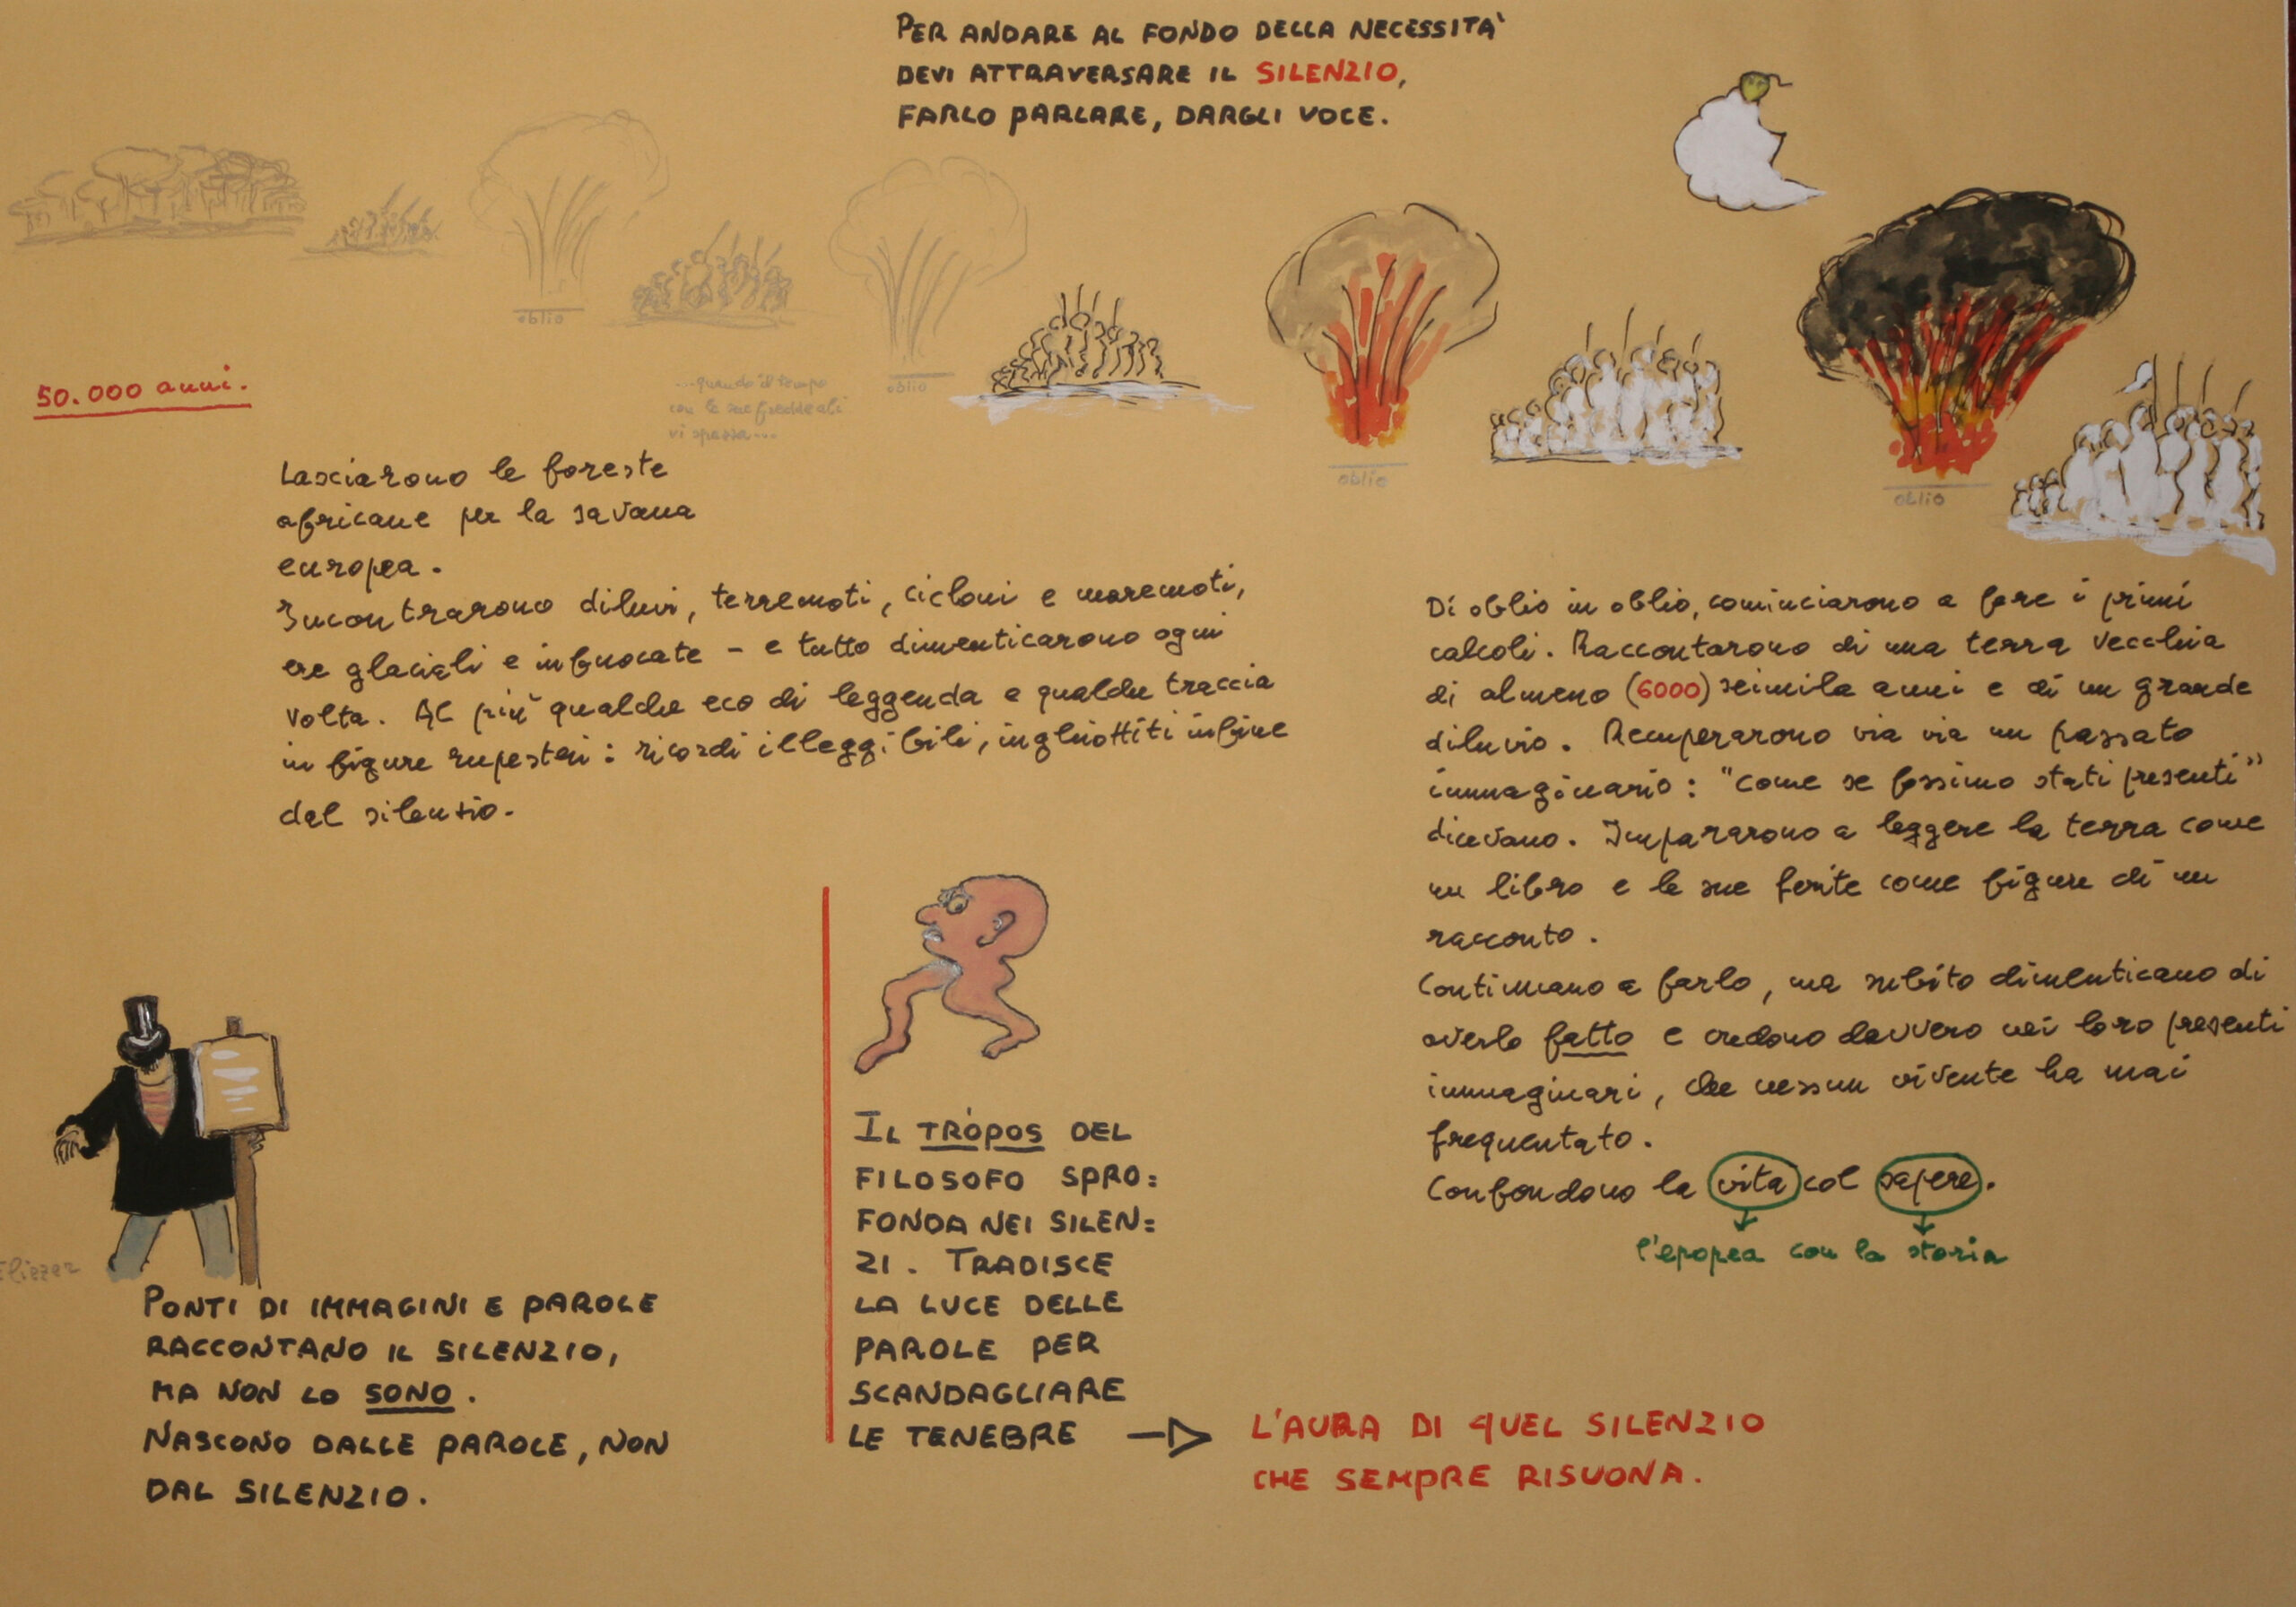 PER ANDARE AL FONDO DELLA NECESSITA'
DEVI ATTRAVERSARE IL SILENZIO,
FARLO PARLARE, DARGLI VOCE.
oblio
oblio
oblio
oblio
50.000 anni.
...quando il tempo
con le sue fredde ali
vi spazza...
Lasciarono le foreste
africane per la savana
europea.
Incontrarono diluvi, terremoti, cicloni e maremoti,
ere glaciali e infuocate – e tutto dimenticarono ogni
volta. Al più qualche eco di leggenda e qualche traccia
in figure rupestri: ricordi illeggibili, inghiottiti infine
dal silenzio.
Di oblio in oblio, cominciarono a fare i primi
calcoli. Raccontarono di una terra vecchia
di almeno (6000) seimila anni e di un grande
diluvio. Recuperarono via via un passato
immaginario: "come se fossimo stati presenti"
dicevano. Impararono a leggere la terra come
un libro e le sue ferite come figure di un
racconto.
Continuano a farlo, ma subito dimenticano di
averlo fatto e credono davvero nei loro presenti
immaginari, che nessun vivente ha mai
frequentato.
Confondono la vita col sapere.
l'epopea con la storia
Eliezer
PONTI DI IMMAGINI E PAROLE
RACCONTANO IL SILENZIO,
MA NON LO SONO.
NASCONO DALLE PAROLE, NON
DAL SILENZIO.
IL TRÒPOS DEL
FILOSOFO SPRO=
FONDA NEI SILEN=
ZI. TRADISCE
LA LUCE DELLE
PAROLE PER
SCANDAGLIARE
LE TENEBRE
L'AURA DI QUEL SILENZIO
CHE SEMPRE RISUONA.